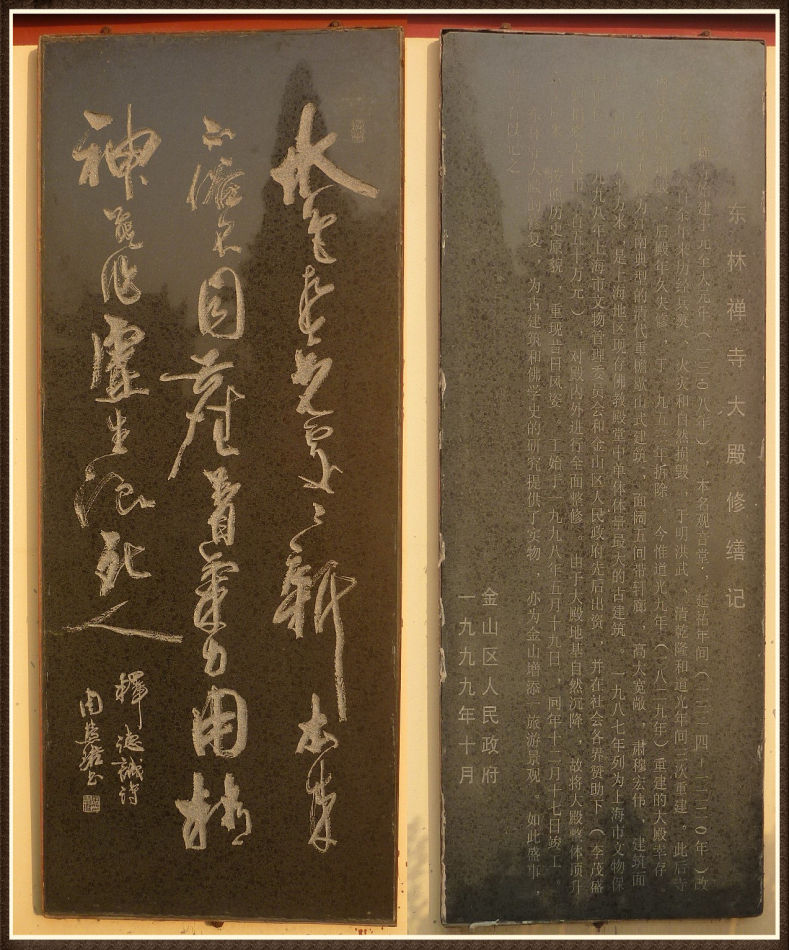 水色春光處〻新本来
不俗不同塵著氣力用精
神莫作虚生浪死人
釋德誠诗
周慧珺书
东林禅寺大殿修缮记
建于元至大元年(一三〇八年),本名观音堂,延祐年间(一三一四-一三二〇年)改
余年来历经兵燹、火灾和自然损毁,于明洪武、清乾隆和道光年间三次重建。此后寺
殿年久失修,于一九五一年拆除,今惟道光九年(一八二九年)重建的大殿幸存。
为江南典型的清代重檐歇山式建筑,面阔五间带封廊,高大宽敞,肃穆宏伟,建筑面
八平方米,是上海地区现存佛教殿堂中单体体量最大的古建筑,一九八七年列为上海市文物保
九八年上海市文物管理委员会和金山区人民政府先后出资,并在社会各界赞助下(李茂盛
五十万元),对殿内外进行全面修缮。由于大殿地基自然沉降,故将大殿整体顶升
历史原貌,重现昔日风姿。工始于一九九八年五月十九日,同年十二月十七日竣工。
复,为古建筑和佛学史的研究提供了实物,亦为金山增添一旅游景观。如此盛事,
以记之
金山区人民政府
一九九九年十月